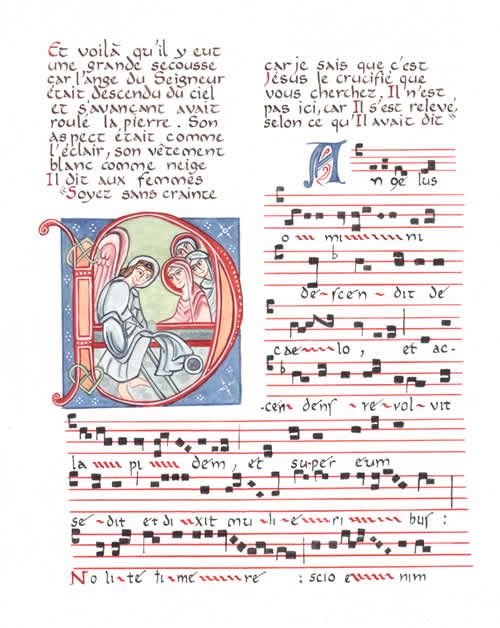 Et voilà qu'il y eut
une grande secousse
car l'ange du Seigneur
était descendu du ciel
et s'avançant avait
roulé la pierre. Son
aspect était comme
l'éclair, son vêtement
blanc comme neige
Il dit aux femmes
"Soyez sans crainte
car je sais que c'est
Jésus le crucifié que
vous cherchez. Il n'est
pas ici, car Il s'est relevé,
selon ce qu'Il avait dit"
An ge lus
o mi ni
de-scen-dit de
cae-lo, et ac-
-cen dens-re-vol-vit
la pi dem, et su-per eum
se-dit et di-xit mu-li-e-ri-bus:
No li-te ti-me-re : scio e-nim